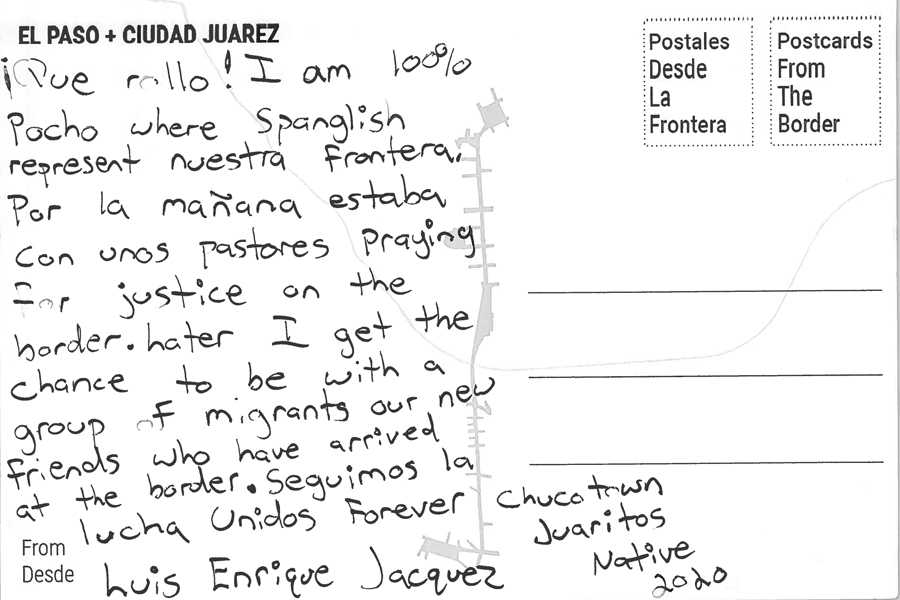 EL PASO + CIUDAD JUAREZ
¡Que rollo! I am 100%
Pocho where Spanglish
represent nuestra frontera.
Por la mañana estaba
con unos pastores praying
For justice on the
border. Later I get the
chance to be with a
group of migrants our new
friends who have arrived
at the border. Seguimos la
lucha Unidos Forever
Luis Enrique Jacquez
From
Desde
Chucotown
Juaritos
Native
2020
Postales
Desde
La
Frontera
Postcards
From
The
Border